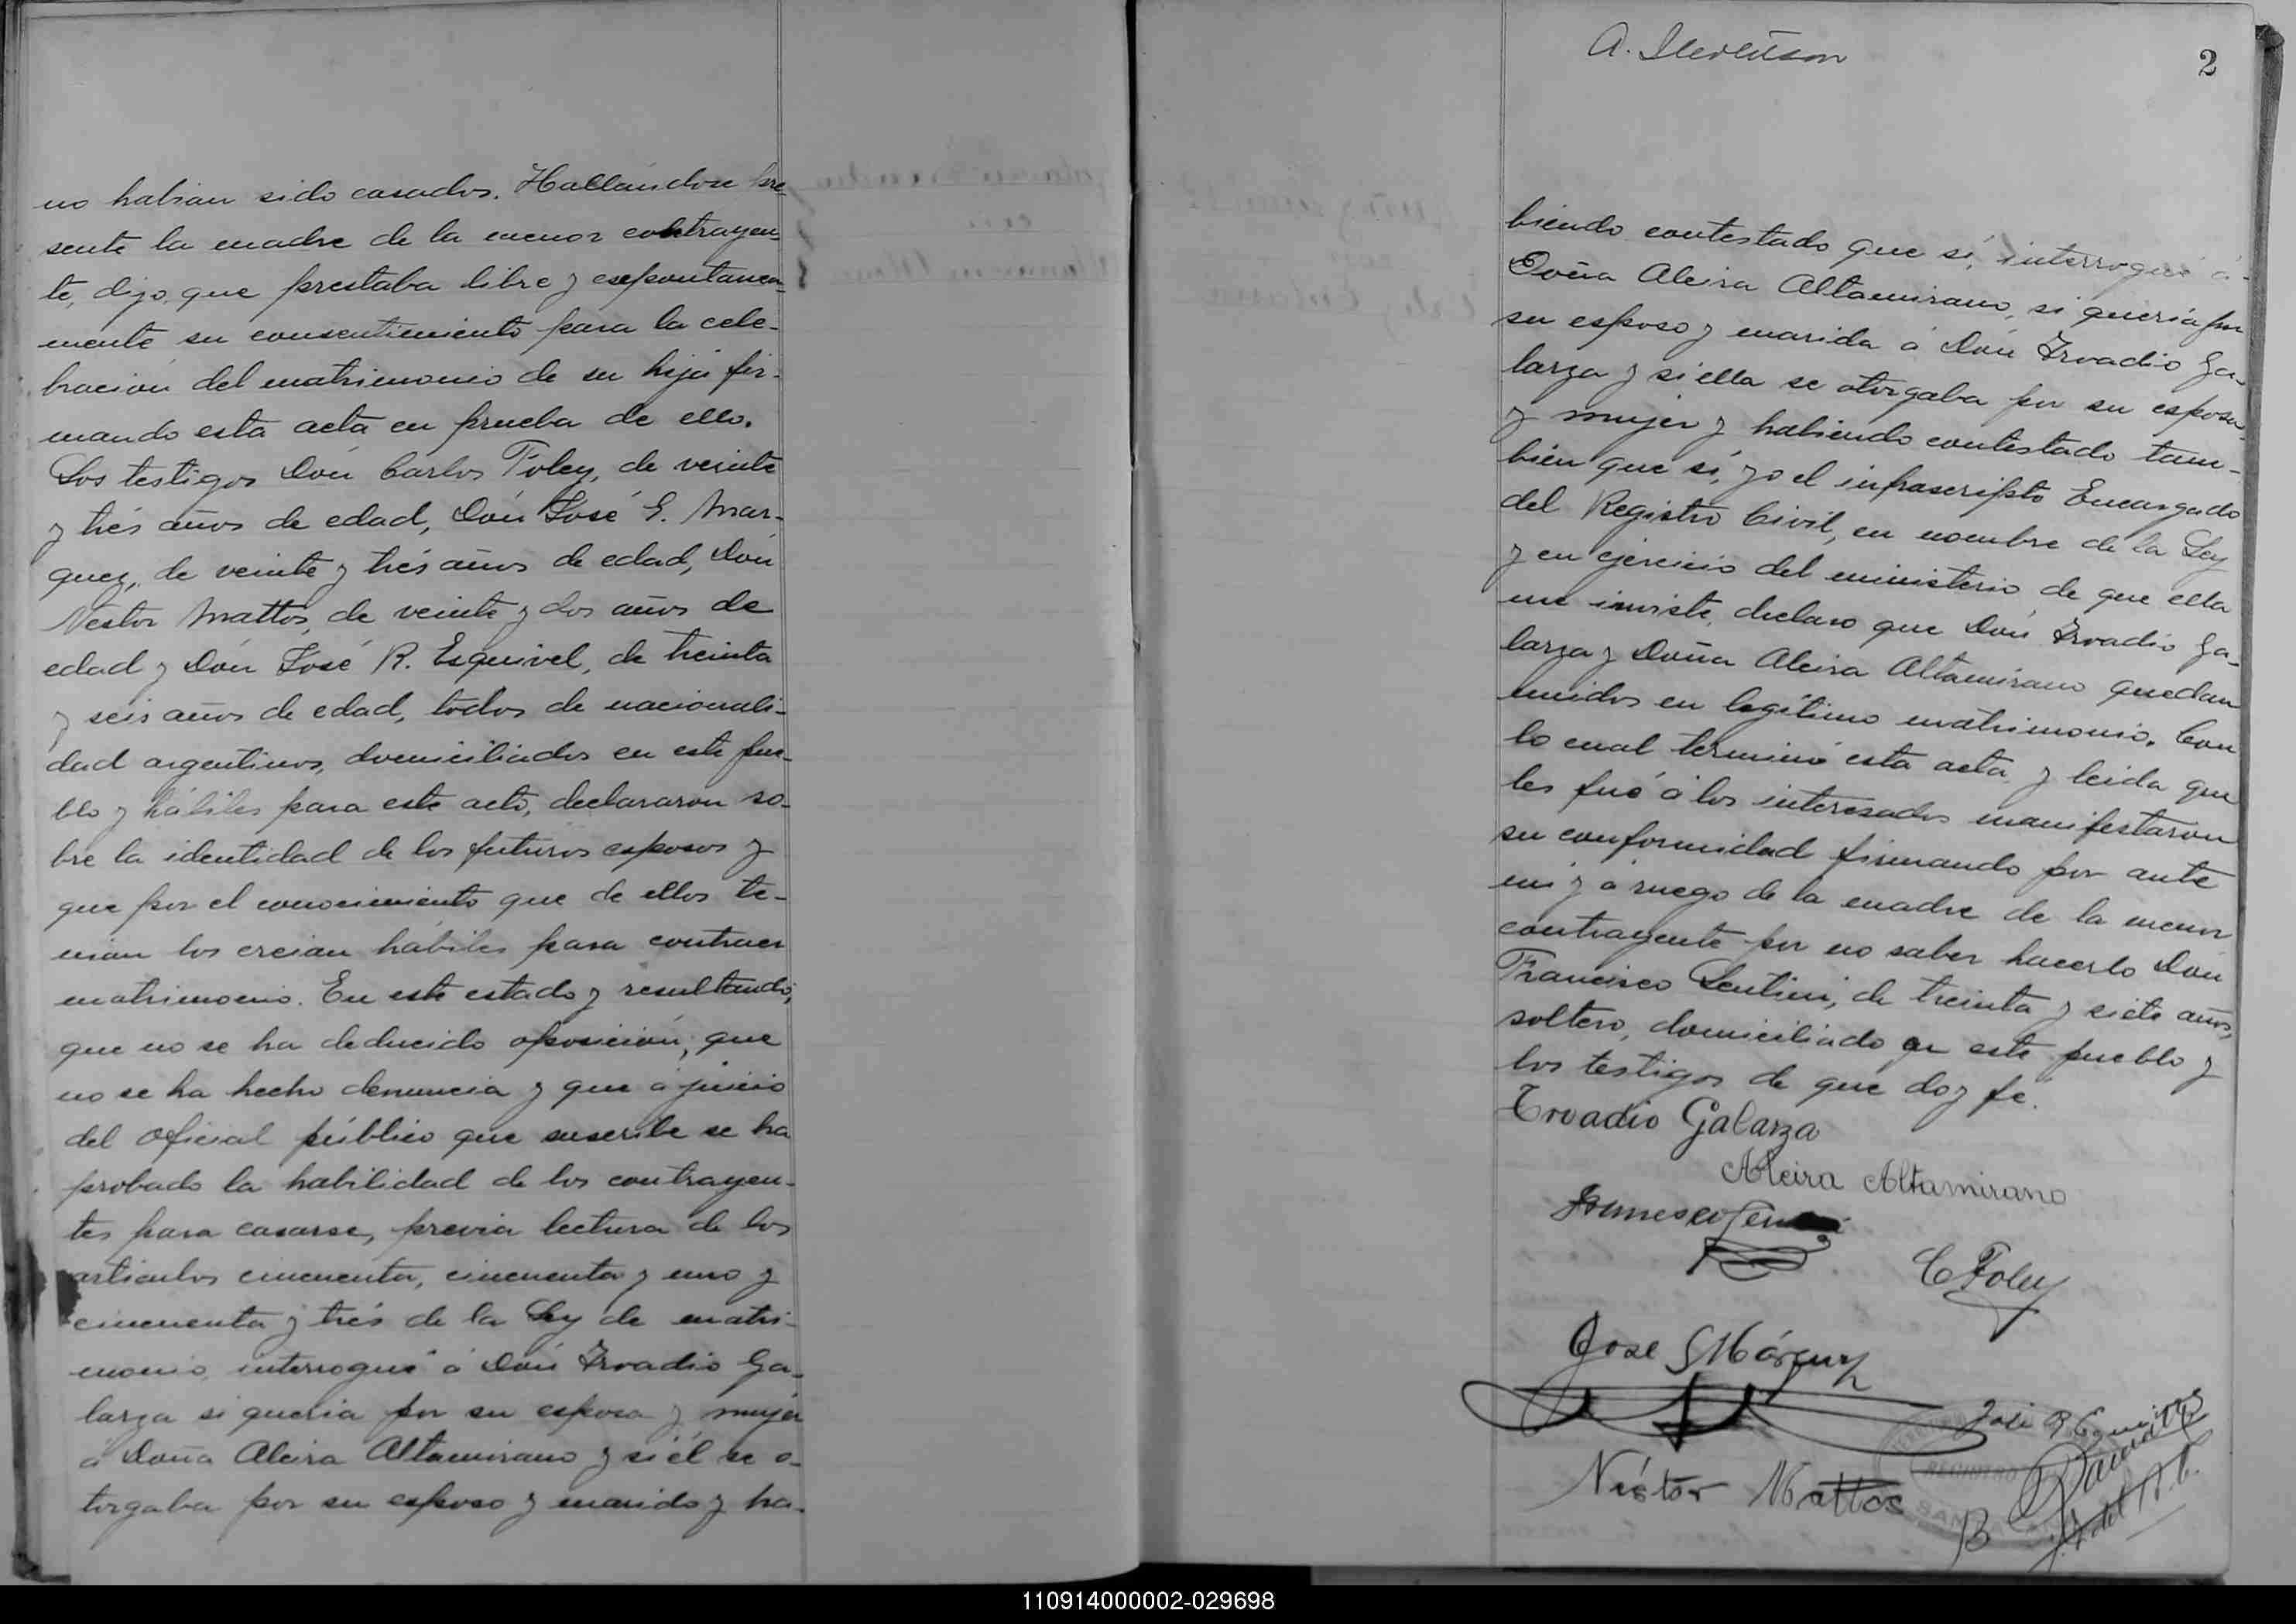 no habian sido casados. Hallándose pre-
sente la madre de la menor contrayen-
te, dijo, que prestaba libre y espontanea-
mente su consentimiento para la cele-
bración del matrimonio de su hija fir-
mando esta acta en prueba de ello.
Los testigos Don Carlos Foley, de veinte
y trés años de edad, Dón José S. Mar-
quez, de veinte y trés años de edad, Dón
Nestor Mattos, de veinte y dos años de
edad y Dón José R. Esquivel, de treinta
y seis años de edad, todos de nacionali-
dad argentinos, domiciliados en este pue-
blo y hábiles para este acto, declararon so-
bre la identidad de los futuros esposos y
que por el conocimiento que de ellos te-
nian los creian hábiles para contraer
matrimonio. En este estado y resultando,
que no se ha deducido oposición, que
no se ha hecho denuncia y que á juicio
del oficial público que suscribe se ha
probado la habilidad de los contrayen-
tes para casarse, previa lectura de los
articulos cincuenta, cincuenta y uno y
cincuenta y trés de la Ley de matri-
monio, interrogué á Dón Troadio Ga-
larza si queria por su esposa y mujer
á Doña Alcira Altamirano y si él se o-
torgaba por su esposo y marido y ha-
A. Stevenson
2
biendo contestado que si, interrogué á
Doña Alcira Altamirano, si queria por
su esposo y marido á Dón Troadio Ga-
larza y si ella se otorgaba por su esposa
y mujer y habiendo contestado tam-
bién que si, yo el infrascripto Encargado
del Registro Civil, en nombre de la Ley
y en ejercicio del ministerio de que ella
me inviste, declaro que Dón Troadio Ga-
larza y Doña Alcira Altamirano quedan
unidos en legitimo matrimonio. Con
lo cual terminó esta acta, y leida que
les fué á los interesados manifestaron
su conformidad firmando por ante
mi y á ruego de la madre de la menor
contrayente por no saber hacerlo Dón
Francisco Lentini, de treinta y siete años,
soltero, domiciliado en este pueblo y
los testigos de que doy fé.
Troadio Galarza
Alcira Altamirano
C Foley
Jose S Márquez
Jose R Esquivel
Néstor Mattos
REGISTRO
110914000002-029698